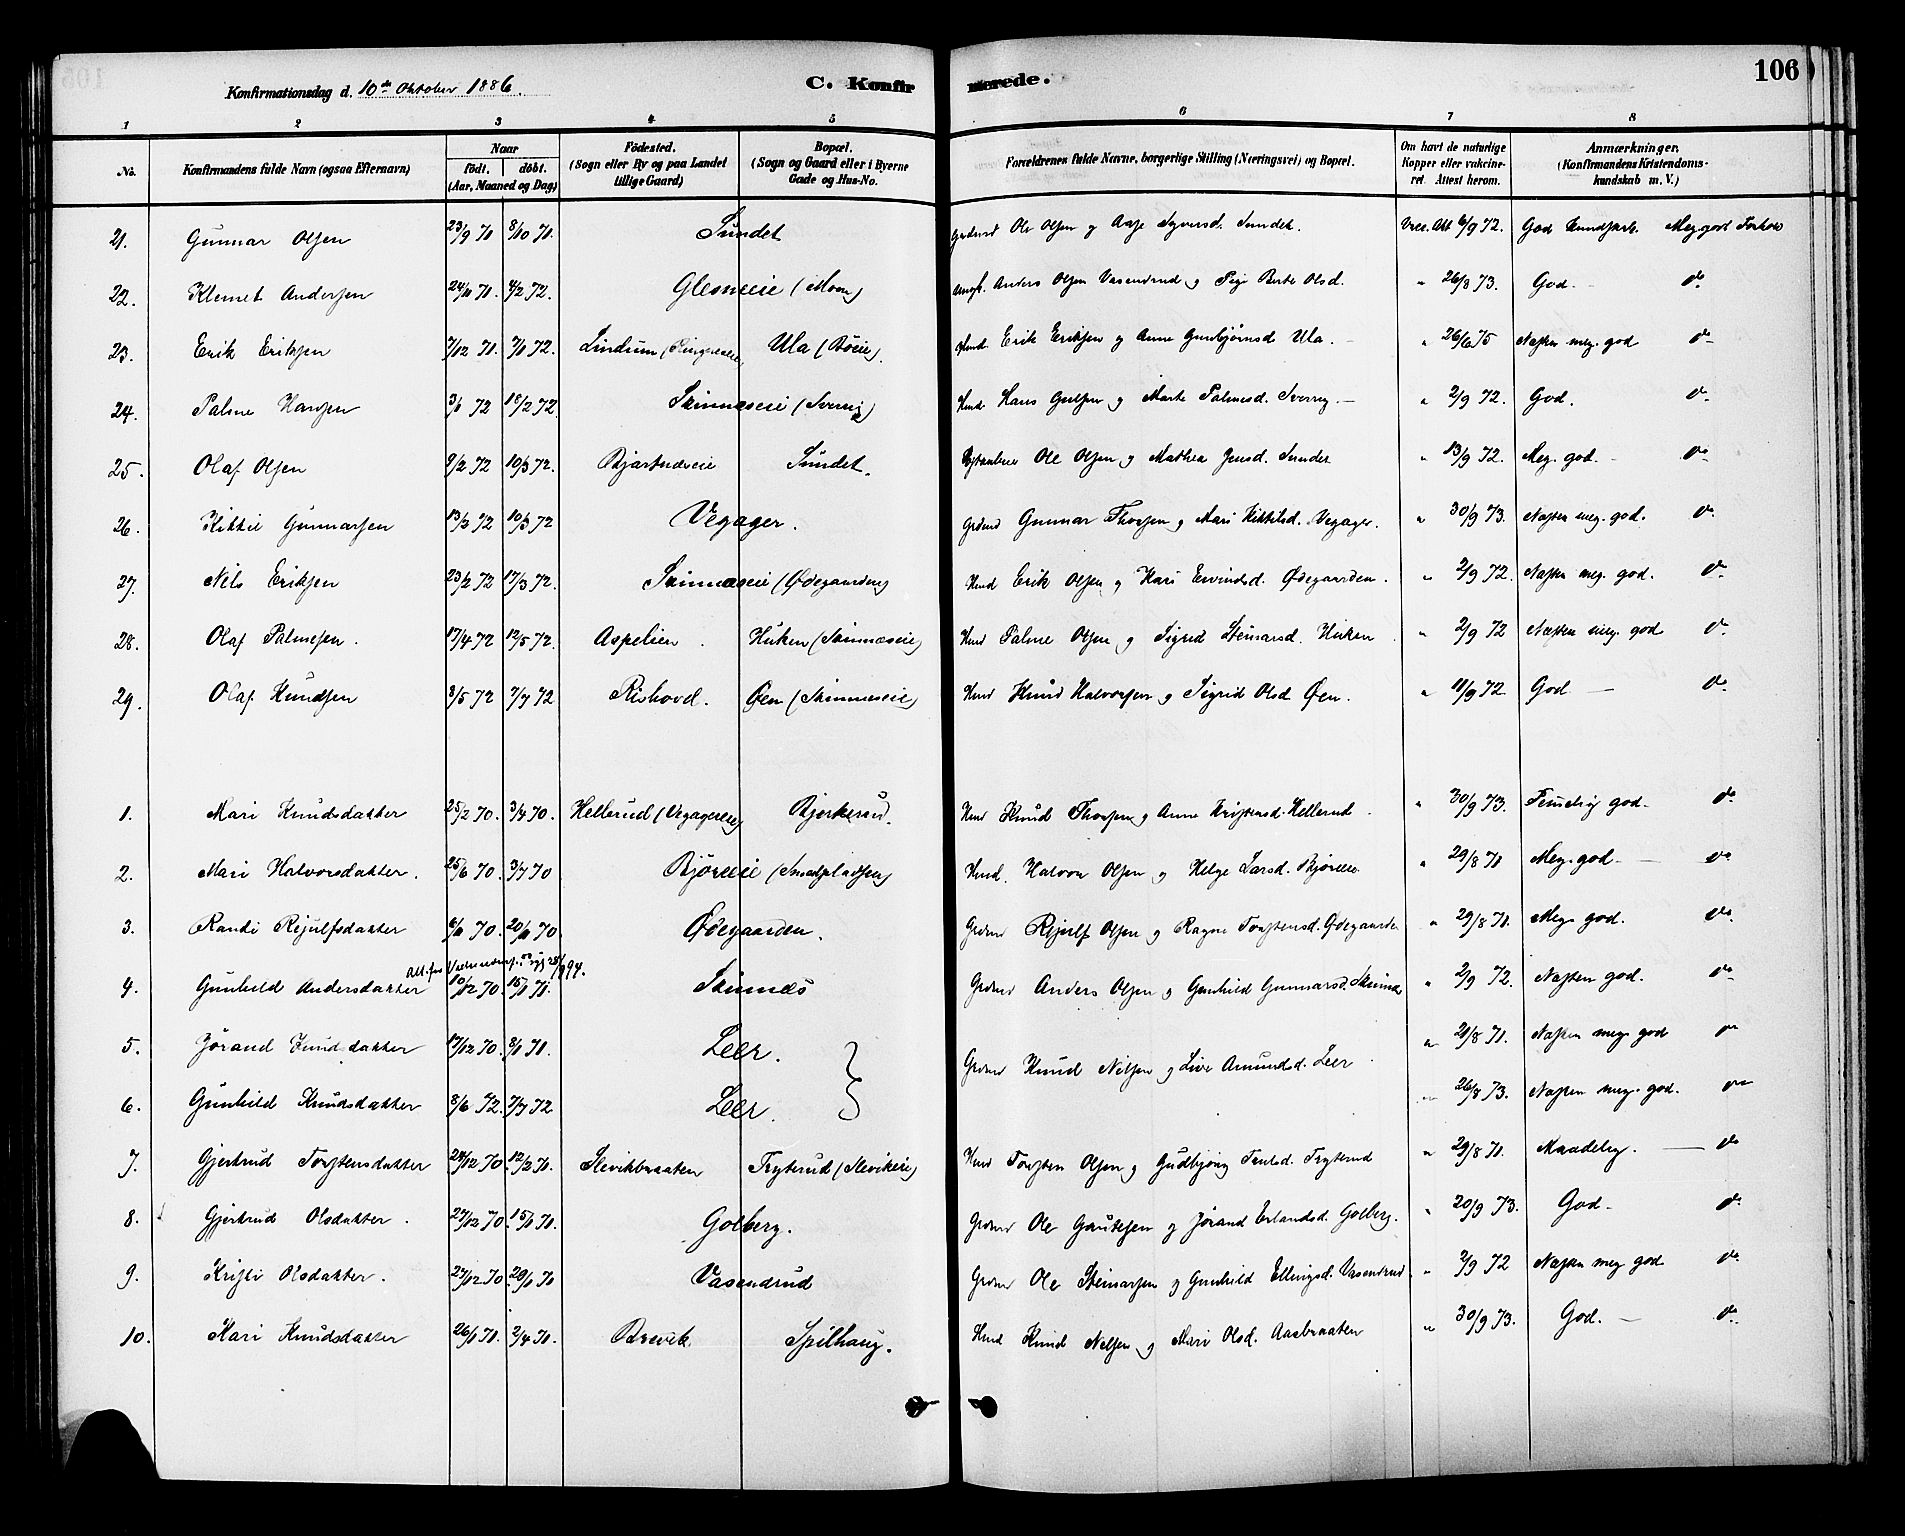 Konfirmationsdag d. 10de Oktober 1886. C. Konfirmerede. 106
1 2 3 4 5 6 7 8
No. Konfirmandens fulde Navn (ogsaa Efternavn) Naar födt. döbt. (Aar, Maaned og Dag) Födested. (Sogn eller By og paa Landet tillige Gaard) Bopæl. (Sogn og Gaard eller i Byerne Gade og Hus-No. Forældrenes fulde Navne, borgerlige Stilling (Næringsvei) og Bopæl. Om havt de naturlige Kopper eller vakcineret. Attest herom. Anmærkninger. (Konfirmandens Kristendomskundskab m. V.)
21. Gunnar Olsen 23/9 70 8/10 70. Sundet Grdmd Ole Olsen og Aase Syversd. Sundet. Vacc. Att 6/9 72. God Kundskab. Meg. god Forhold
22. Klemet Andersen 24/11 71. 4/2 72. Glesneeie (Moen) Anders Olsen Vasendrud og Berte Olsd. " 26/8 73. God. do
23. Erik Eriksen 7/12 71. 7/1 72. Lindum Ula (Böeie). Hmd. Erik Eriksen og Anne Gunbjörnsd Ula. " 26/6 75 Næsten meg. god do
24. Palme Hansen 3/1 72 18/2 72. Skinneseie (Sverrig) Hmd Hans Gulsen og Marte Palmesd. Sverrig. " 2/9 72. God. do
25. Olaf Olsen 9/2 72 10/3 72. Bjartneseie Sundet. Ole Olsen og Mathea Jensd. Sundet " 13/9 72. Meg. god. do
26. Kittil Gunnarsen 13/2 72 10/3 72 Vegager. Grdmd Gunnar Thorsen og Mari Kittilsd. Vegager. " 30/9 73. Næsten meg. god. do
27. Nils Eriksen 23/2 72 17/3 72. Skinneseie (Ødegaarden) Hmd Erik Olsen og Kari Eivindsd. Ødegaarden. " 2/9 72. Næsten meg. god. do
28. Olaf Palmesen. 17/4 72 12/5 72. Aspelien. Huken (Skinneseie) Hmd Palme Olsen og Sigrid Steinarsd. Huken " 2/9 72 Næsten meg. god do
29. Olaf Knudsen 3/5 72 7/7 72 Rishovd. Øen (Skinneseie) Hmd Knud Halvorsen og Sigrid Olsd Øen. " 11/9 72 God do
1. Mari Knudsdatter 25/2 70. 3/4 70. Hellerud (Vegagereie) Bjerkerud. Hmd Knud Thorsen og Anne Kristensd. Hellerud " 30/9 73. Temelig god. do
2. Mari Halvorsdatter. 25/6 70. 3/7 70 Björeeie (Smedpladsen) Hmd. Halvor Olsen og Helge Larsd. Björeeie " 29/8 71 Meg. god. do
3. Randi Rejulfsdatter 6/11 70. 20/11 70. Ødegaarden. Grdmd Rejulf Olsen og Ragne Torstensd. Ødegaarden " 29/8 71. Meg. god. do
4. Gunhild Andersdatter 10/12 70. 15/1 71. Skinnes Grdmd Anders Olsen og Gunhild Gunnarsd. Skinnes " 2/9 72. Næsten god. do
5. Jörand Knudsdatter 17/12 70. 8/1 71. Leer. " 21/8 71. Næsten meg. god do
Grdmd Knud Nilsen og Live Amundsd. Leer
6. Gunhild Knudsdatter 8/6 72. 7/7 72 Leer. " 26/8 73. Næsten meg. god. do
7. Gjertrud Torstensdatter 24/12 70. 12/2 71. Slevikbraaten Tryterud (Slevikeie) Hmd Torsten Olsen og Gudbjörg Trulsd. Tryterud " 29/8 71. Maadelig. do
8. Gjertrud Olsdatter. 27/12 70. 15/1 71. Golberg. Grdmd Ole Gautesen og Jörand Erlandsd. Golberg. " 20/9 73. God. do
9. Kristi Olsdatter. 27/12 70. 29/1 71 Vasendrud Grdmd Ole Steinarsen og Gunhild Ellingsd. Vasendrud. " 2/9 72 Næsten meg god do
10. Kari Knudsdatter 26/1 71. 2/4 71. Brevik Spilhaug. Hmd Knud Nilsen og Mari Olsd. Aasbraaten " 30/9 73. God. do